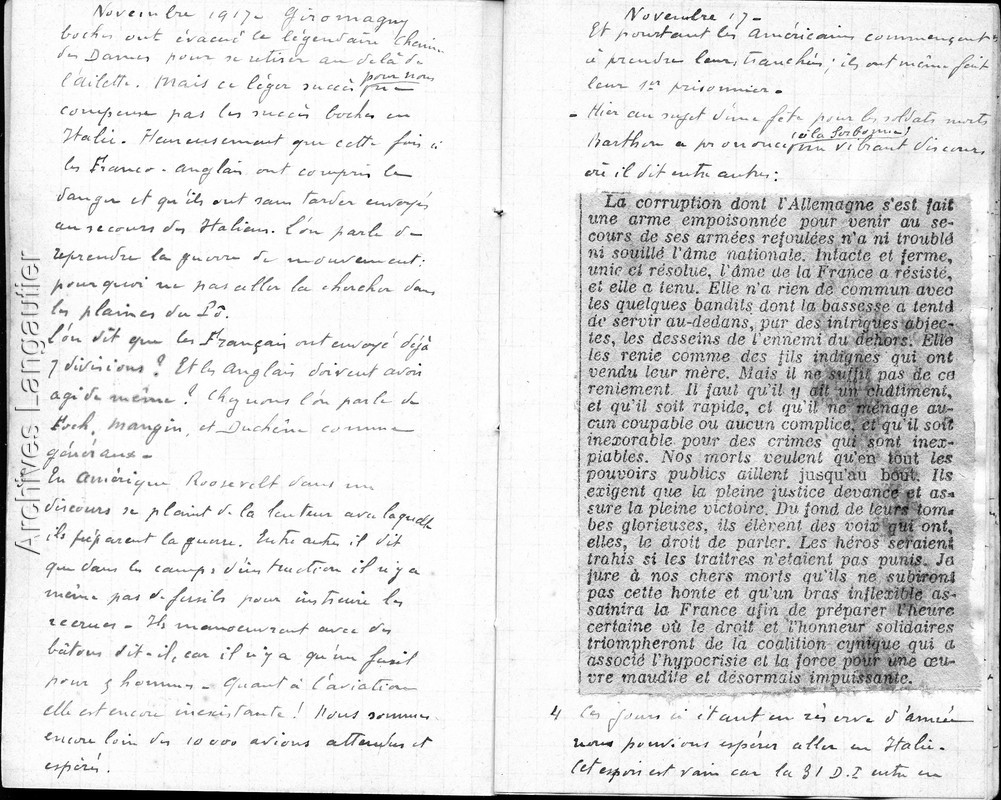 Novembre 1917 - Giromagny
boches ont évacué le légendaire chemin
des Dames pour se retirer au delà de
l'ailette. Mais ce léger succès pour nous
compense pas les succès boches en
Italie. Heureusement que cette fois ci
les Franco-anglais ont compris le
danger et qu'ils ont sans tarder envoyés
au secours des Italiens. L'on parle de
reprendre la guerre de mouvement:
pourquoi ne pas aller la chercher dans
les plaines du Pô.
L'on dit que les Français ont envoyé déjà
7 divisions? Et les anglais doivent avoir
agi de même? Chez nous l'on parle de
Foch, Mangin, et Duchêne comme
généraux -
En Amérique Roosevelt dans un
discours se plaint de la lenteur avec laquelle
ils préparent la guerre. Entre autres il dit
que dans les camps d'instruction il n'y a
même pas de fusils pour instruire les
recrues - Ils manoeuvrent avec des
bâtons dit-il, car il n'y a qu'un fusil
pour 3 hommes - Quant à l'aviation
elle est encore inexistante! Nous sommes
encore loin des 10 000 avions attendus et
espérés.
Novembre 17 -
Et pourtant les Américains commencent
à prendre leurs tranchées; ils ont même fait
leur 1er prisonnier -
- Hier au sujet d'une fête pour les soldats morts
(à la Sorbonne)
Barthou a prononcé un vibrant discours
où il dit entre autres:
La corruption dont l'Allemagne s'est fait
une arme empoisonnée pour venir au se-
cours de ses armées refoulées n'a ni troublé
ni souillé l'âme nationale. Intacte et ferme,
unie et résolue, l'âme de la France a résisté,
et elle a tenu. Elle n'a rien de commun avec
les quelques bandits dont la bassesse a tenté
de servir au-dedans, par des intrigues abjec-
tes, les desseins de l'ennemi du dehors. Elle
les renie comme des fils indignes qui ont
vendu leur mère. Mais il ne suffit pas de ce
reniement. Il faut qu'il y ait un châtiment,
et qu'il soit rapide, et qu'il ne ménage au-
cun coupable ou aucun complice, et qu'il soit
inexorable pour des crimes qui sont inex-
piables. Nos morts veulent qu'en tout les
pouvoirs publics aillent jusqu'au bout. Ils
exigent que la pleine justice devance et as-
sure la pleine victoire. Du fond de leurs tom-
bes glorieuses, ils élèvent des voix qui ont,
elles, le droit de parler. Les héros seraient
trahis si les traîtres n'étaient pas punis. Je
jure à nos chers morts qu'ils ne subiront
pas cette honte et qu'un bras inflexible as-
sainira la France afin de préparer l'heure
certaine où le droit et l'honneur solidaires
triompheront de la coalition cynique qui a
associé l'hypocrisie et la force pour une œu-
vre maudite et désormais impuissante.
4 Ces jours ci étant en réserve d'armée
nous pouvions espérer aller en Italie -
Cet espoir est vain car la 31 D.I entre en
Archives Langautier